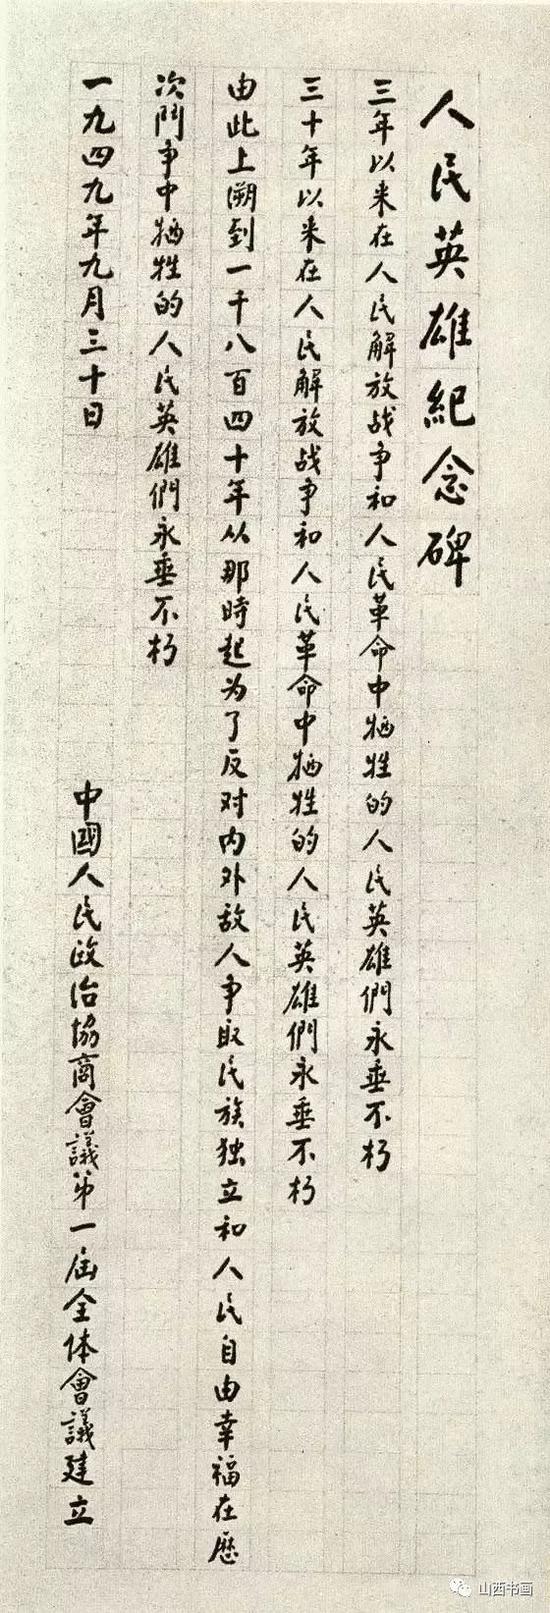 人民英雄紀念碑
三年以来在人民解放战争和人民革命中牺牲的人民英雄們永垂不朽
三十年以来在人民解放战争和人民革命中牺牲的人民英雄們永垂不朽
由此上溯到一千八百四十年从那時起为了反对内外敌人争取民族独立和人民自由幸福在歷
次鬥争中牺牲的人民英雄們永垂不朽
一九四九年九月三十日
中國人民政治協商會議第一届全体會議建立
山西书画